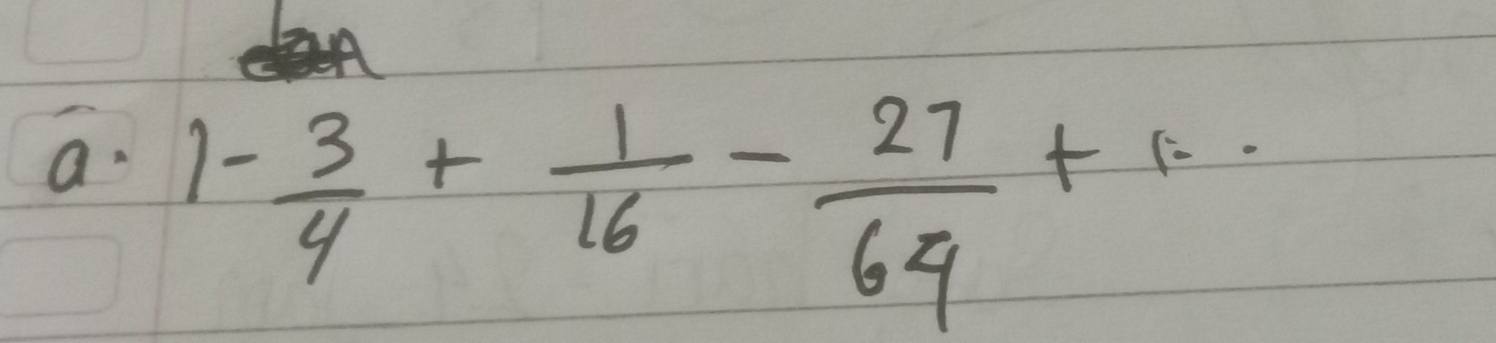 a. 1 - 3/4 + 1/16 - 27/64 + ...